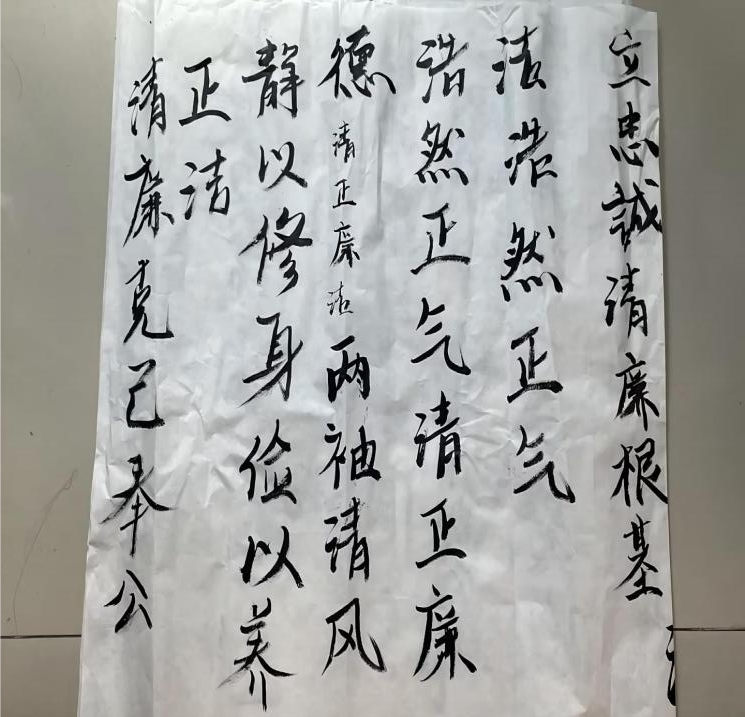 清廉克己奉公
正洁
静以修身俭以养
德清正廉洁两袖清风
浩然正气清正廉
洁浩然正气
立忠誠清廉根基